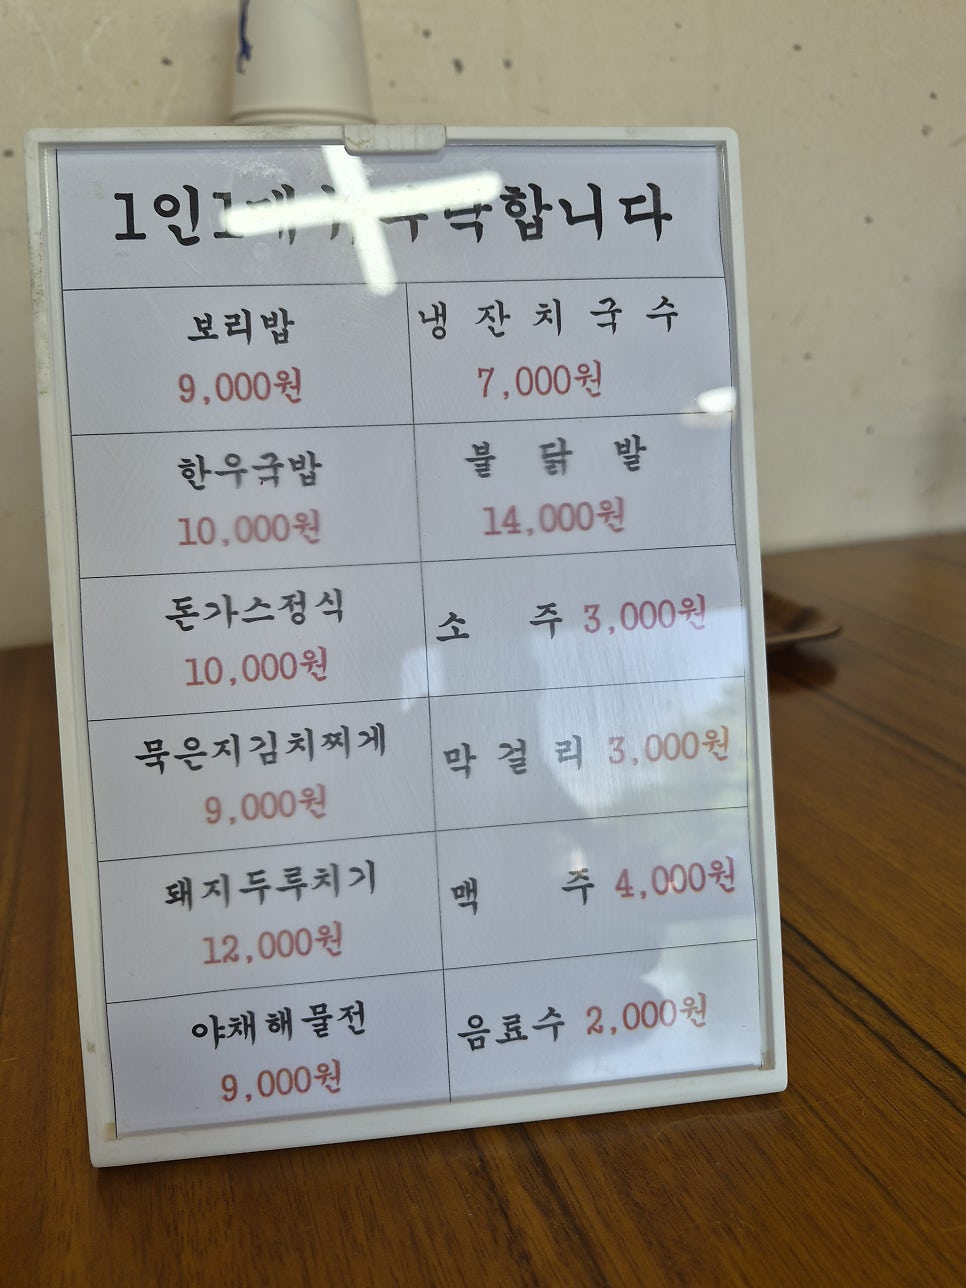 1인1메뉴 부탁합니다
보리밥
9,000원
냉잔치국수
7,000원
한우국밥
10,000원
불닭발
14,000원
돈가스정식
10,000원
소주 3,000원
묵은지김치찌게
9,000원
막걸리 3,000원
돼지두루치기
12,000원
맥주 4,000원
야채해물전
9,000원
음료수 2,000원